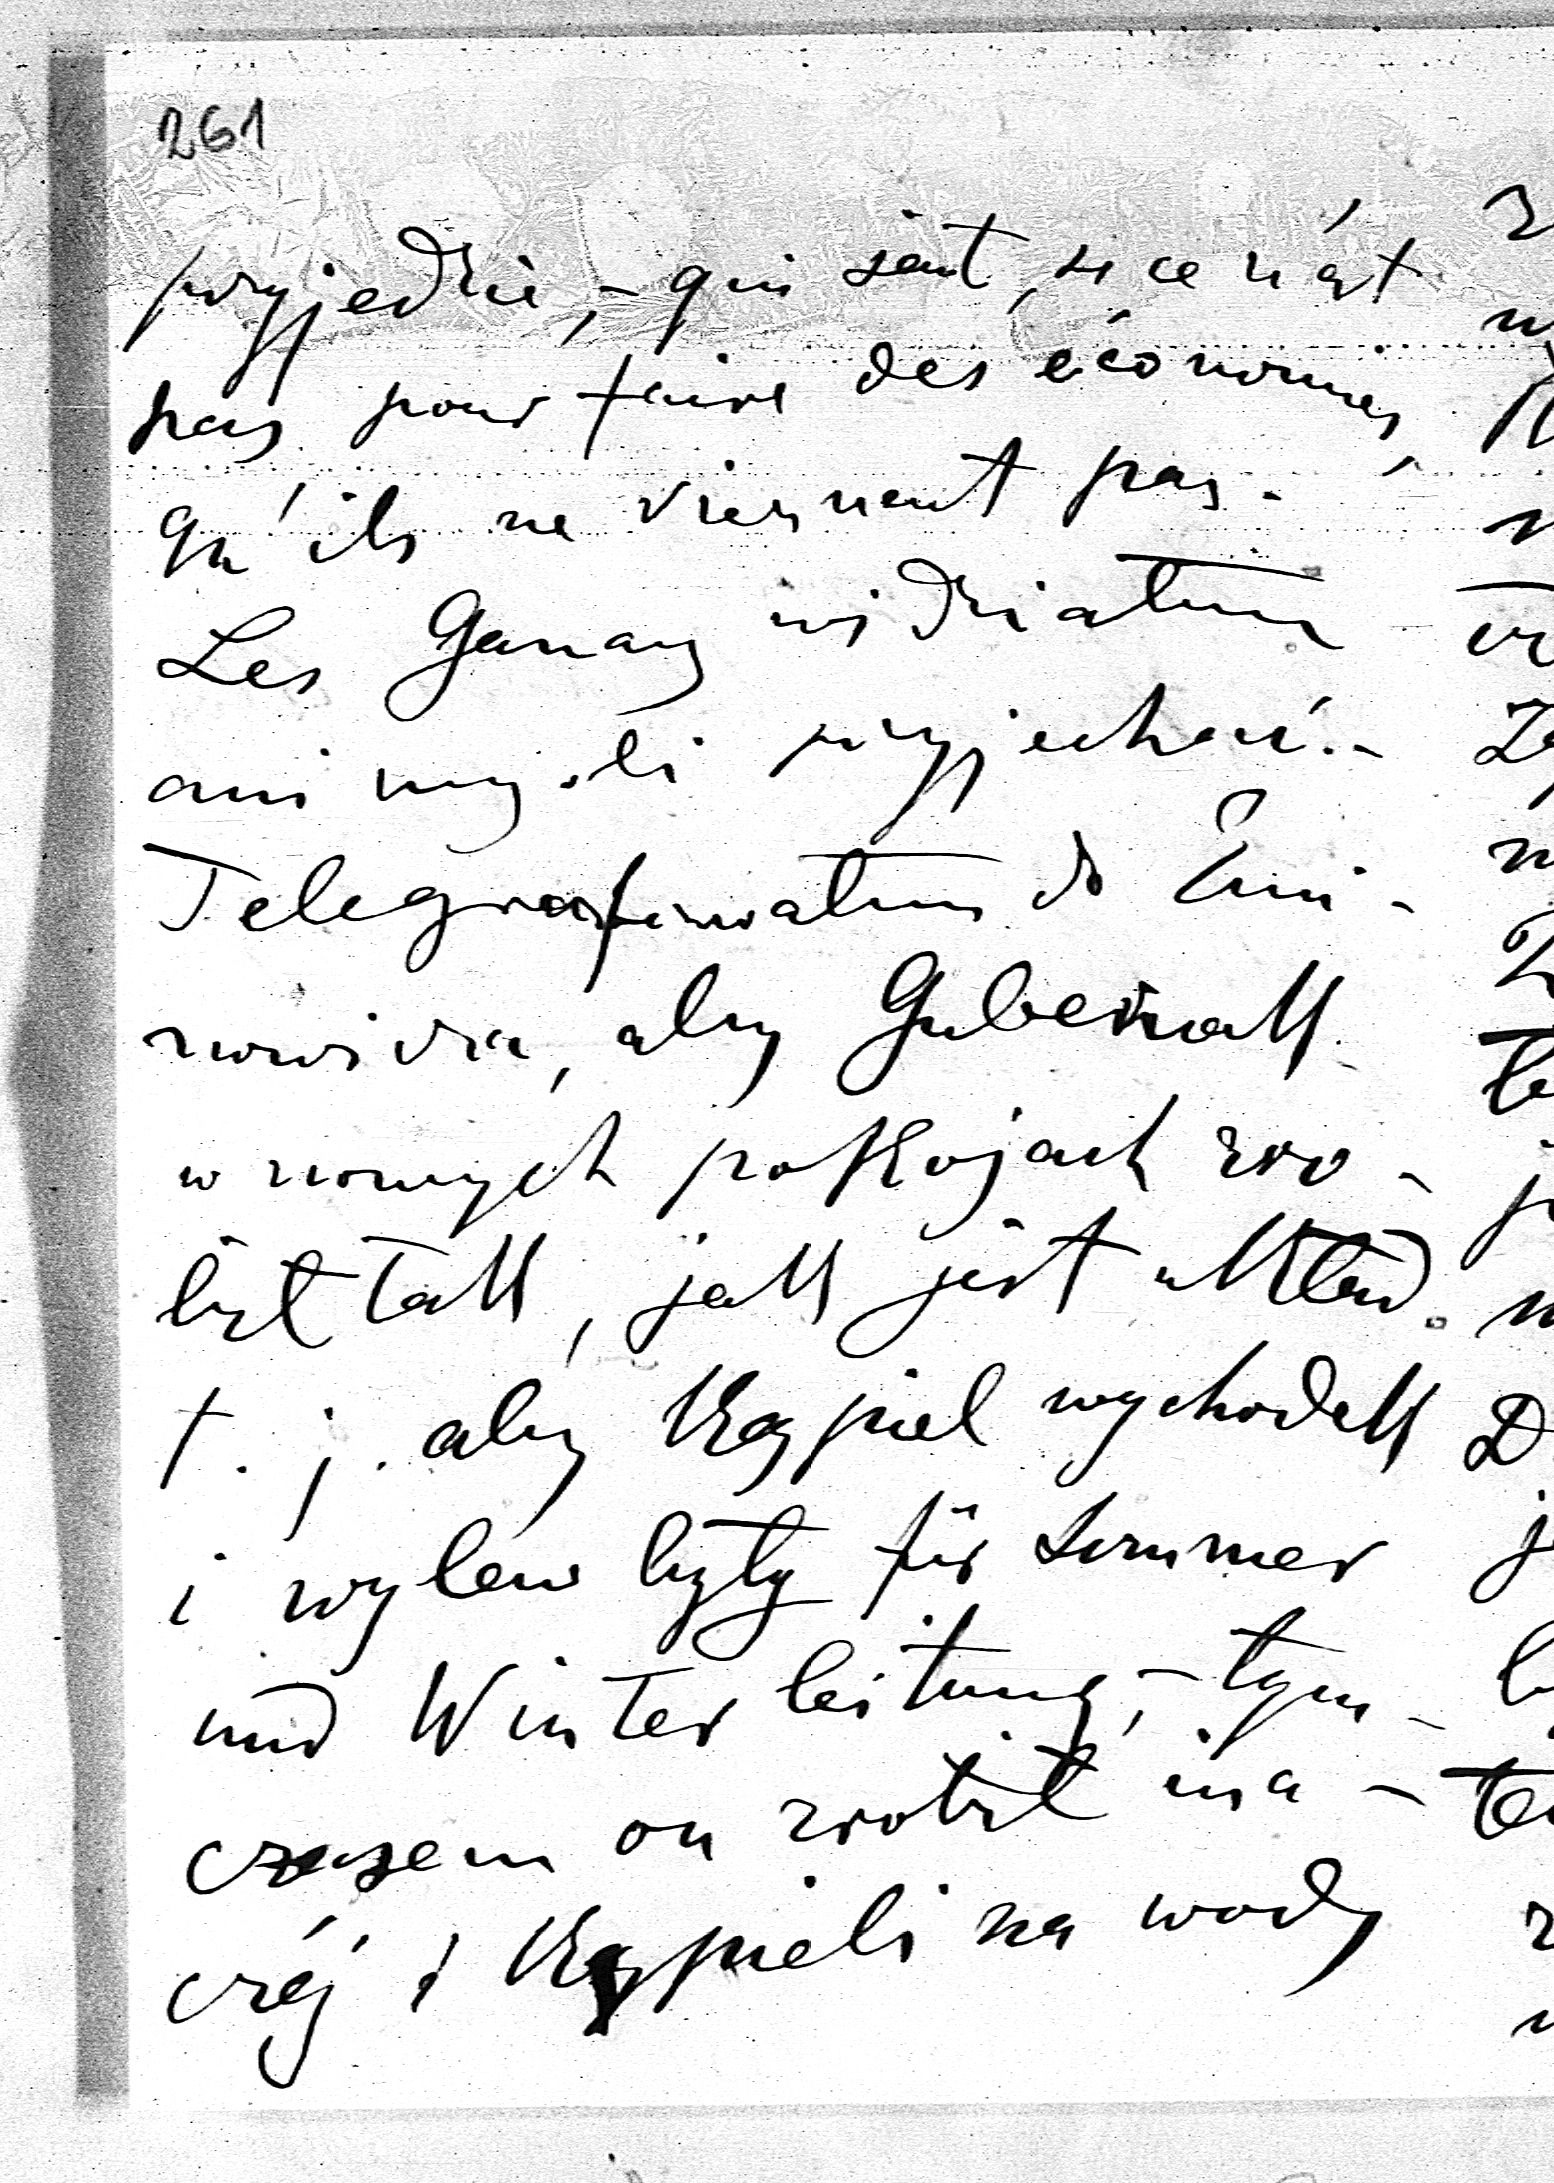 261
przyjedzie, – qui sait, si ce n'est
pas pour faire des économies,
qu'ils ne viennent pas.
Les Ganay widziałem
ani myśli przyjechać. –
Telegrafowałem do
aby Gubernat
w nowych pokojach zro-
bił tak, jak jest układ.
t. j. aby kąpiel wychodek
i wylew były für Sommer
und Winterleitung, – tym-
czasem on zrobił ina-
czéj i kąpieli na wody